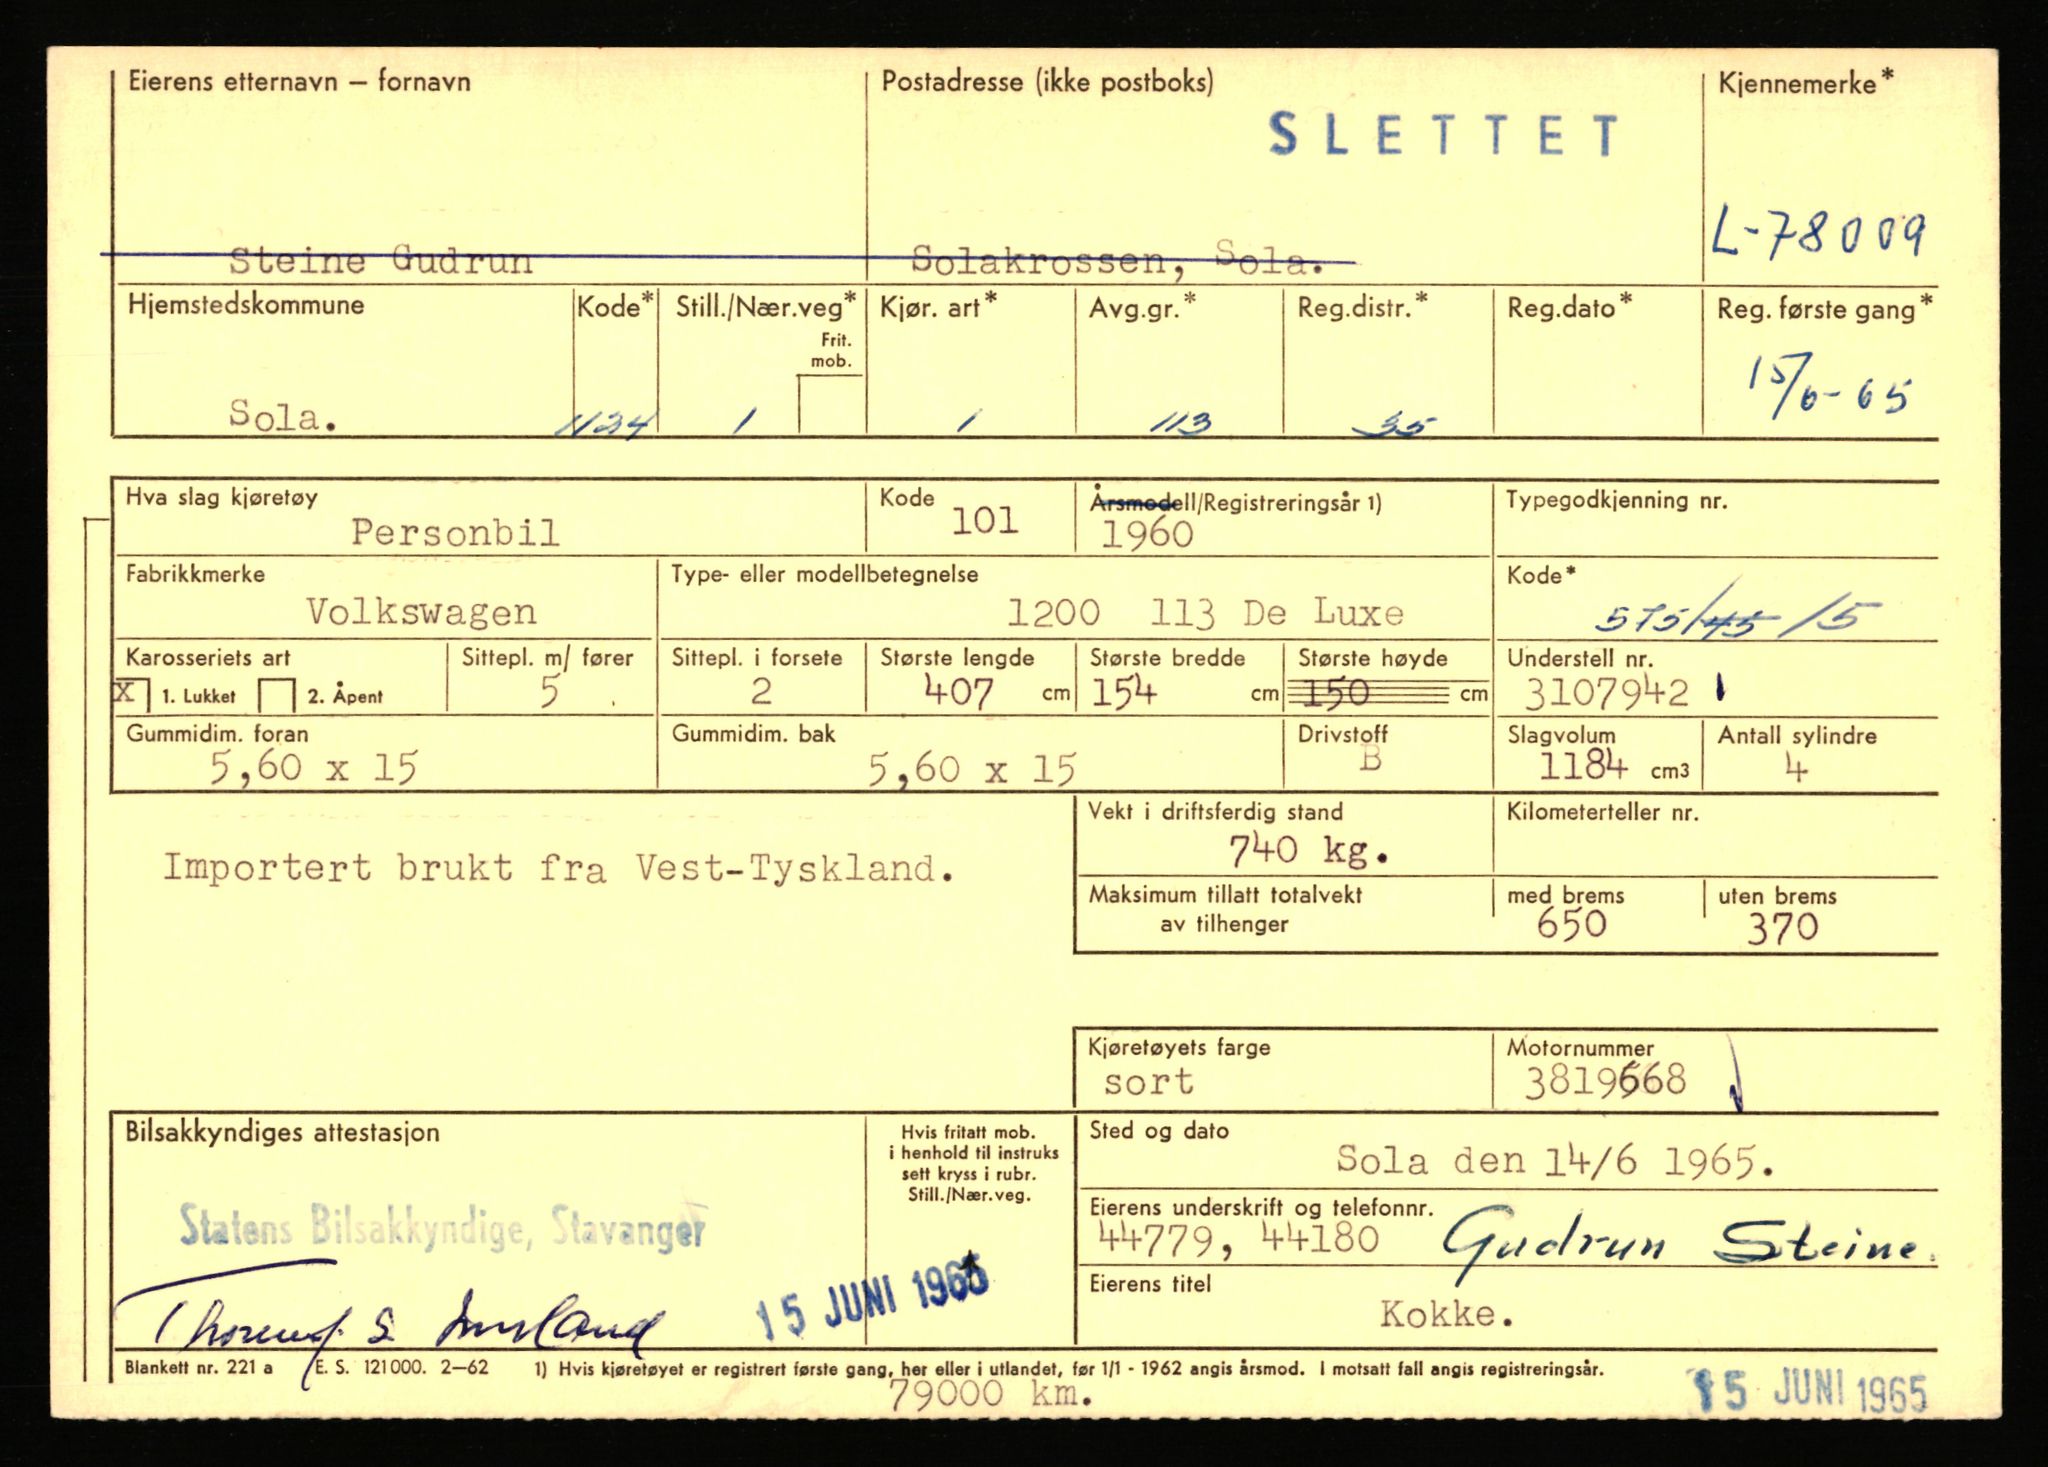 Eierens etternavn – fornavn
Postadresse (ikke postboks)
Kjennemerke*
SLETTET
L-78009
Steine Gudrun
Solakrossen, Sola.
Hjemstedskommune
Kode*
Still./Nær.veg*
Frit. mob.
Kjør. art*
Avg.gr.*
Reg.distr.*
Reg.dato*
Reg. første gang*
Sola.
1124
1
1
113
35
15/6-65
Hva slag kjøretøy
Kode
Årsmodell/Registreringsår 1)
Typegodkjenning nr.
Personbil
101
1960
Fabrikkmerke
Type- eller modellbetegnelse
Kode*
Volkswagen
1200 113 De Luxe
575/45/5
Karosseriets art
Sittepl. m/ fører
Sittepl. i forsete
Største lengde
Største bredde
Største høyde
Understell nr.
X 1. Lukket 2. Åpent
5
2
407 cm
154 cm
150 cm
3107942
Gummidim. foran
Gummidim. bak
Drivstoff
Slagvolum
Antall sylindre
5,60 x 15
5,60 x 15
B
1184 cm3
4
Vekt i driftsferdig stand
Kilometerteller nr.
740 kg.
Importert brukt fra Vest-Tyskland.
Maksimum tillatt totalvekt av tilhenger
med brems
uten brems
650
370
Kjøretøyets farge
Motornummer
sort
3819668
Bilsakkyndiges attestasjon
Hvis fritatt mob.
i henhold til instruks
sett kryss i rubr.
Still./Nær.veg.
Sted og dato
Sola den 14/6 1965.
Statens Bilsakkyndige, Stavanger
Eierens underskrift og telefonnr.
44779, 44180 Gudrun Steine.
15 JUNI 1965
Eierens titel
Kokke.
Blankett nr. 221 a E. S. 121000. 2–62 1) Hvis kjøretøyet er registrert første gang, her eller i utlandet, før 1/1 - 1962 angis årsmod. I motsatt fall angis registreringsår.
79000 km.
15 JUNI 1965